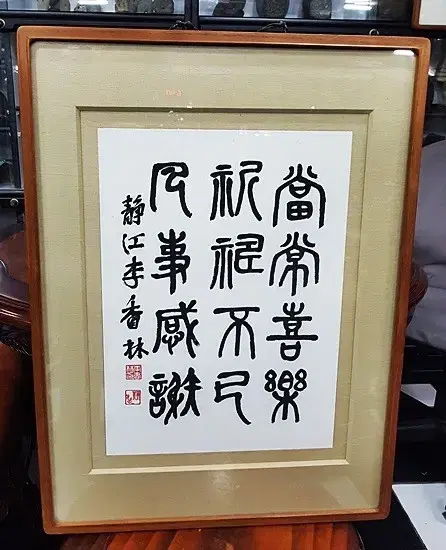 當常喜樂
祈禱不已
凡事感謝
靜江李香林